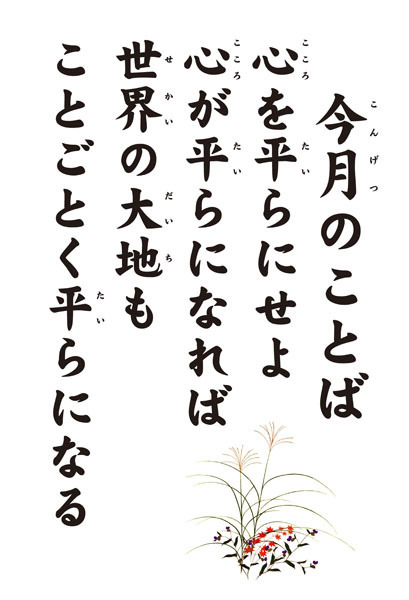 今月のことば
心を平らにせよ
心が平らになれば
世界の大地も
ことごとく平らになる